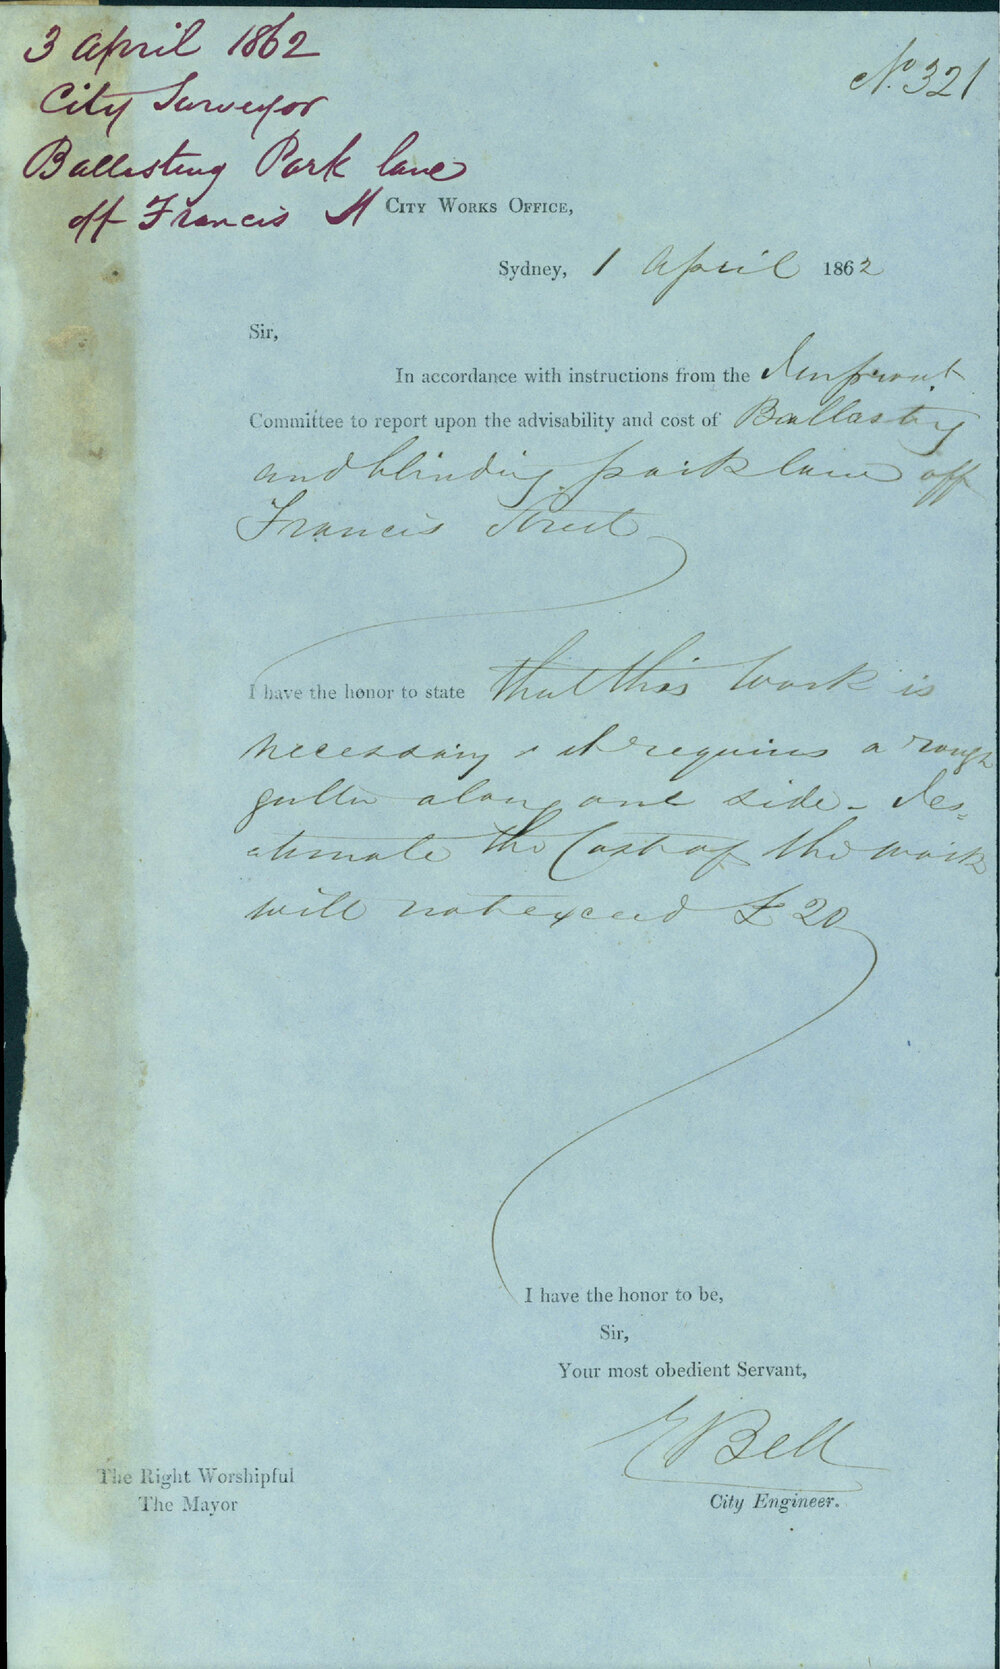 3 April 1862
City Surveyor
Ballasting Park lane
off Francis St
No. 321
City Works Office,
Sydney, 1 April 1862
Sir,
In accordance with instructions from the Improvt.
Committee to report upon the advisability and cost of Ballasting
and blinding park lane off
Francis Street
I have the honor to state that this work is
necessary & it requires a rough
gutter along one side - I es=
timate the Cost of the work
will not exceed £20
I have the honor to be,
Sir,
Your most obedient Servant,
E Bell
City Engineer.
The Right Worshipful
The Mayor